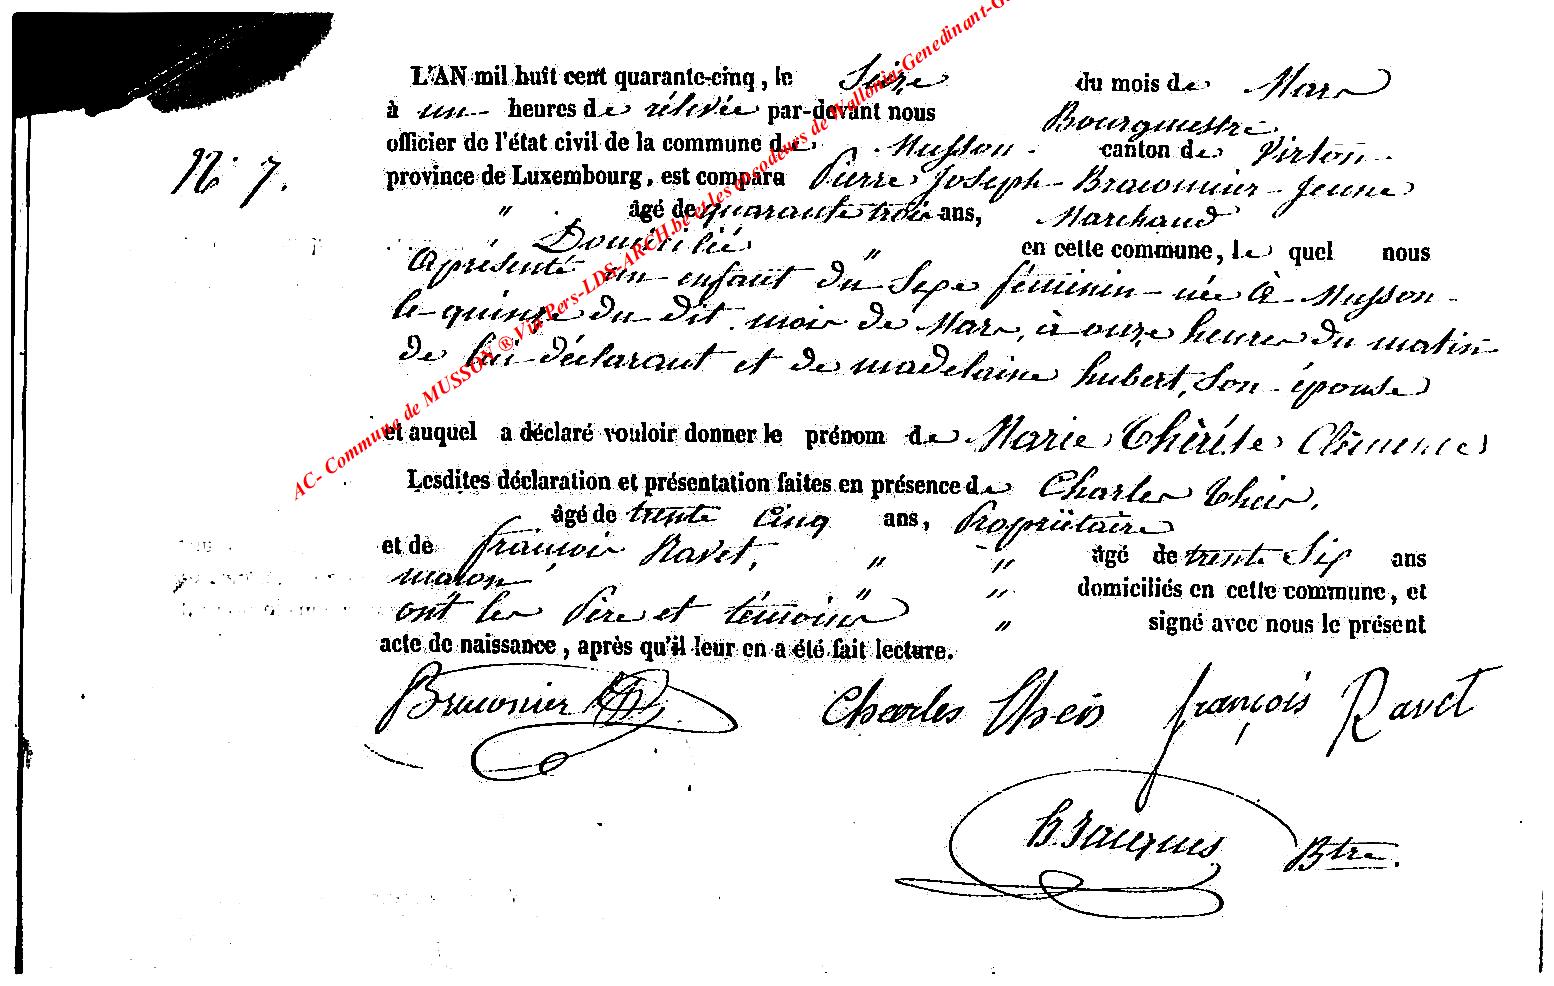 L'AN mil huit cent quarante-cinq, le Seize du mois de Mars
à un heures de rélevée par-devant nous Bourgmestre
officier de l'état civil de la commune de Musson canton de Virton
N° 7.
province de Luxembourg, est compara Pierre Joseph Braconnier Jeune
" âgé de quarante trois ans, Marchand
" Domicilié " en cette commune, le quel nous
a présenté un enfant du Sexe féminin née à Musson
le quinze du dit mois de Mars, à onze heures du matin
de lui déclarant et de madelaine hubert, Son épouse
et auquel a déclaré vouloir donner le prénom de Marie Thérése Clémence
Lesdites déclaration et présentation faites en présence de Charles Theis,
âgé de trente Cinq ans, Propriétaire
et de françois Ravet, " " âgé de trente Six ans
maçon " " domiciliés en cette commune, et
ont les Père et témoins " signé avec nous le présent
acte de naissance, après qu'il leur en a été fait lecture.
Braconnier Charles Theis françois Ravet
Jacques Btre.
AC- Commune de MUSSON ® Via Pers-LDS-ARCH.be et les encodeurs de Wallonia-Genedinant-G